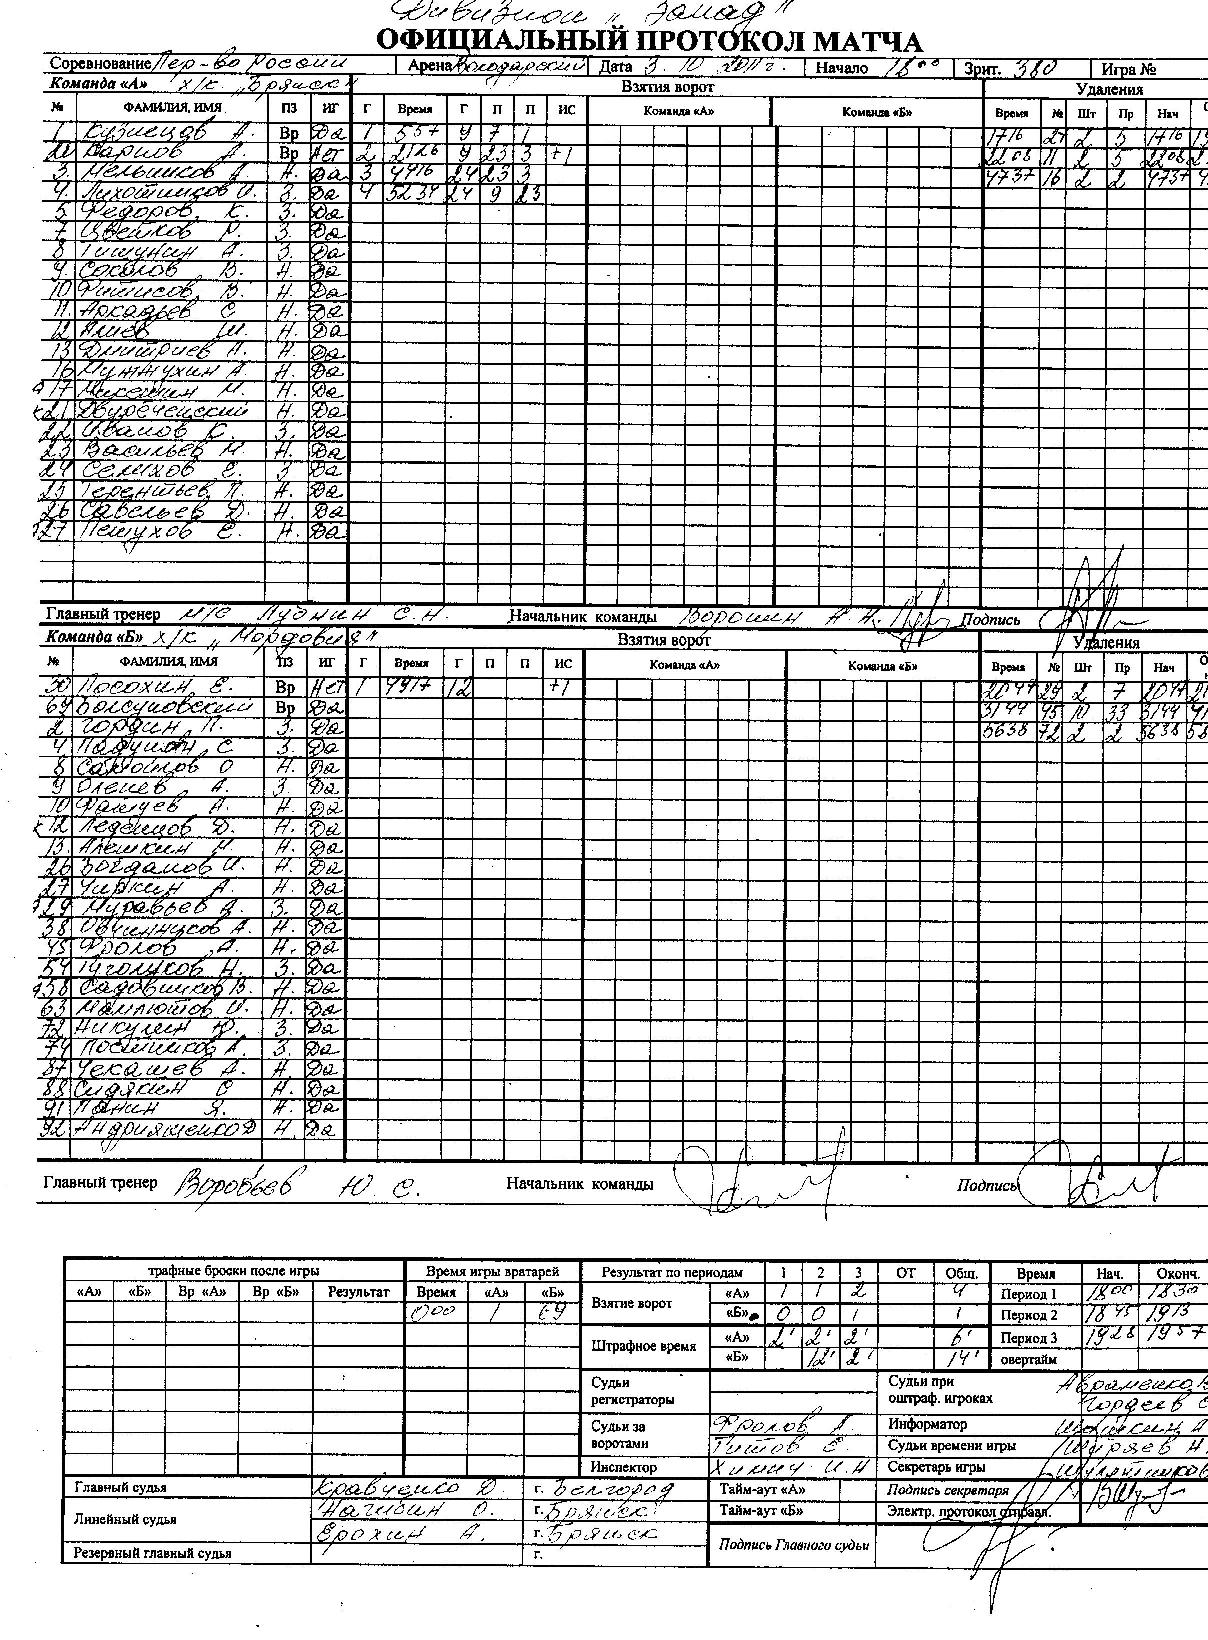 Дивизион „Запад"
ОФИЦИАЛЬНЫЙ ПРОТОКОЛ МАТЧА
Соревнование Пер-во России Арена Володарский Дата 3.10.2011г. Начало 18 00 Зрит. 380 Игра №
Команда «А» х/к „Брянск" Взятия ворот Удаления
№ ФАМИЛИЯ, ИМЯ ПЗ ИГ Г Время Г П П ИС Команда «А» Команда «Б» Время № Шт Пр Нач
1 Кузнецов А. Вр Да 1 557 9 7 1 1716 27 2 5 1716
Карпов А. Вр Нет 2 2126 9 23 3 +1 2208 11 2 5 2208
3. Мельников А. Да 3 4416 24 23 3 4737 16 2 2 4737
4. Лихотников И. З. Да 4 5234 24 9 23
5 Федоров К. З. Да
7 Цветков Р. З. Да
8 Тишунин А. З. Да
9. Соколов В. Н. Да
10 В. Н. Да
11. Аркадьев С Н. Да
12 Алиев Ш. Н. Да
13 Дмитриев Н. Н. Да
16 Мужжухин А. Н. Да
17 Микешин М. Н. Да
к21 Двуреченский Н. Да
22 Иванов К. З. Да
23 Васильев М. Н. Да
24 Селихов Е. З Да
25 Терентьев П. Н. Да
26 Савельев Д. Н. Да
27 Петухов Е. Н. Да
Главный тренер М/С Лудкин С.Н. Начальник команды Ворошин А.Н. Подпись
Команда «Б» х/к „Мордовия" Взятия ворот Удаления
№ ФАМИЛИЯ, ИМЯ ПЗ ИГ Г Время Г П П ИС Команда «А» Команда «Б» Время № Шт Пр Нач
30 Посохин Е. Вр Нет 1 4917 12 +1 2047 29 2 7 2047
69 Болсуновский Вр Да 3144 45 10 33 3144
2 Гордин П. З. Да 5638 72 2 2 5638
4 Падукин С З. Да
8 Самойлов О Н. Да
9 Оленев А. З. Да
10 А. Н. Да
к12 Леденцов Д. Н. Да
13. Алешкин Н. Н. Да
26 Богданов И. Н. Да
27 Чиркин А. Н. Да
29 Муравьев А. З. Да
38 Овчинников А. Н. Да
45 Фролов А. Н. Да
54 Туголуков Н. З. Да
58 Садовников В. Н. Да
63 Мамлютов И. Н. Да
72 Никулин Ю. З. Да
74 Посников А. З. Да
87 Чекашев А. Н Да
88 Сидякин С Н. Да
91 Панин Я. Н. Да
92 Андрияженко Д Н. Да
Главный тренер Воробьев Ю С. Начальник команды Подпись
трафные броски после игры Время игры вратарей Результат по периодам 1 2 3 ОТ Общ. Время Нач. Оконч.
«А» «Б» Вр «А» Вр «Б» Результат Время «А» «Б» Взятие ворот «А» 1 1 2 4 Период 1 1800 1830
000 1 69 «Б» 0 0 1 1 Период 2 1845 1913
Штрафное время «А» 2' 2' 2' 6' Период 3 1928 1957
«Б» 12' 2' 14' овертайм
Судьи регистраторы Судьи при оштраф. игроках Авраменко
Гордеев
Судьи за воротами Фролов А Информатор
Титов Е. Судьи времени игры Ширяев Н.
Инспектор Химич И.Н Секретарь игры
Главный судья Кравченко Д. г. Белгород Тайм-аут «А» Подпись секретаря
Линейный судья Нагибин О. г. Брянск Тайм-аут «Б» Электр. протокол отправл.
Ерохин А. г. Брянск Подпись Главного судьи
Резервный главный судья г.